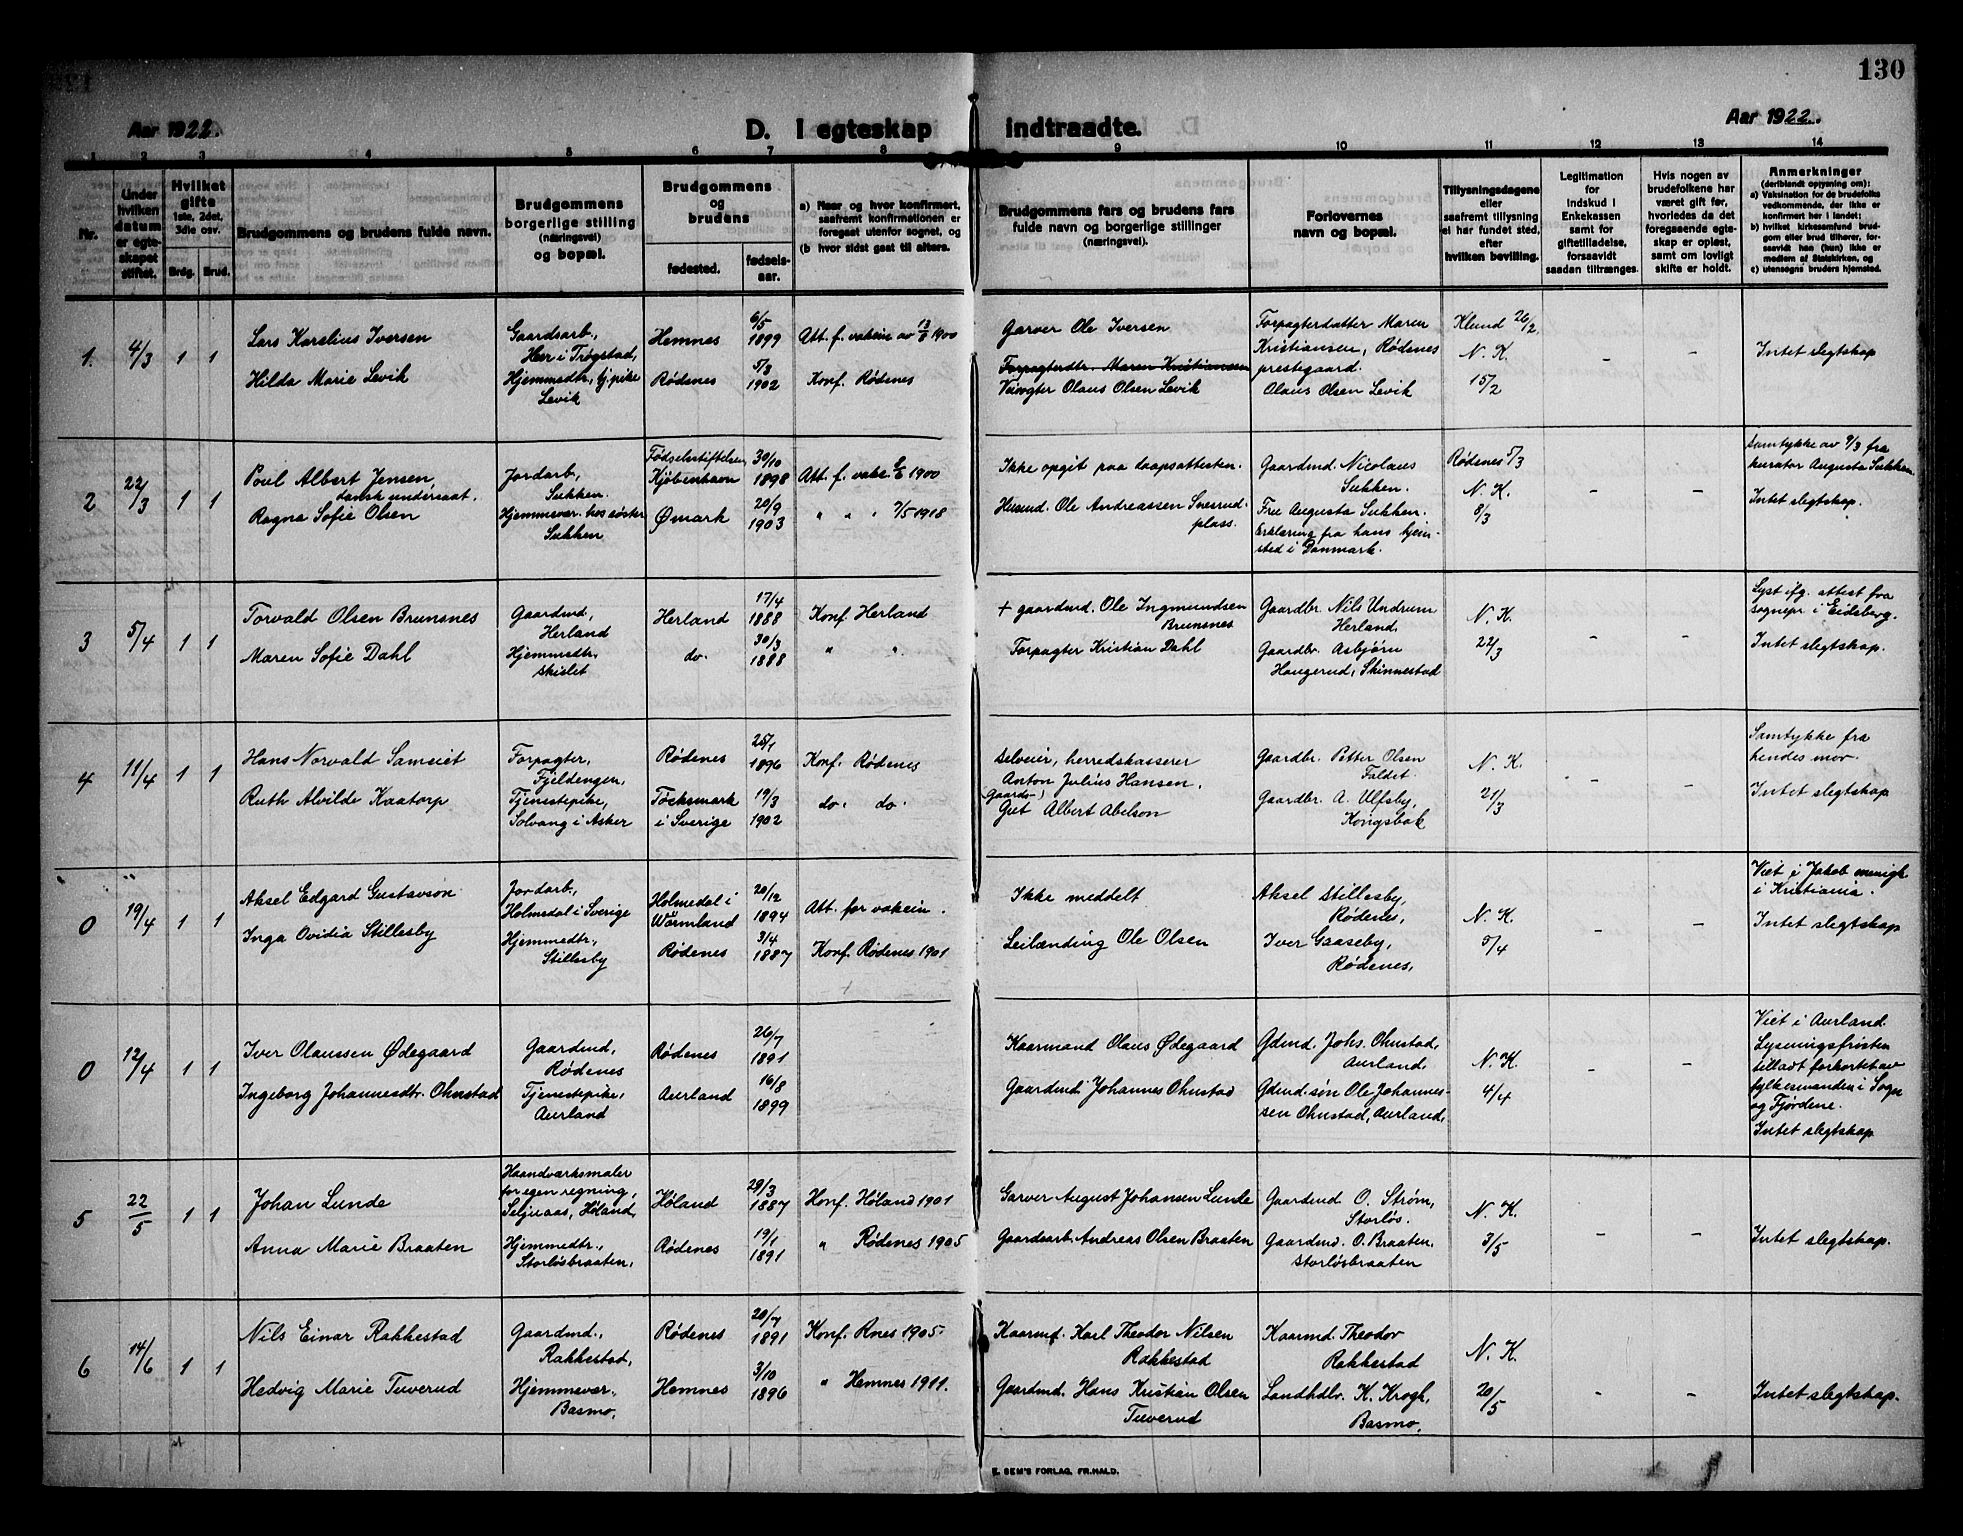 130
Aar 1922.
D. I egteskap indtraadte.
Aar 1922.
1 2 3 4 5 6 7 8 9 10 11 12 13 14
Nr.
Under hvilken datum er egteskapet stiftet.
Hvilket gifte 1ste, 2det, 3die osv.
Brdg. Brud.
Brudgommens og brudens fulde navn.
Brudgommens borgerlige stilling (næringsvei) og bopæl.
Brudgommens og brudens
fødested.
fødselsaar.
a) Naar og hvor konfirmert, saafremt konfirmationen er foregaat utenfor sognet, og
(b hvor sidst gaat til alters.
Brudgommens fars og brudens fars fulde navn og borgerlige stillinger (næringsvei).
Forlovernes navn og bopæl.
Tillysningsdagene eller saafremt tillysning ei har fundet sted, efter hvilken bevilling.
Legitimation for indskud i Enkekassen samt for giftetilladelse, forsaavidt saadan tiltrænges.
Hvis nogen av brudefolkene har været gift før, hvorledes da det foregaaende egteskap er opløst, samt om lovligt skifte er holdt.
Anmerkninger
(deriblandt opysning om):
a) Vaksination for de brudefolks vedkommende, der ikke er konfirmert her i landet;
b) hvilket kirkesamfund brudgom eller brud tilhører, forsaavidt han (hun) ikke er medlem af Statskirken, og
c) utensogns bruders hjemsted.
1. 4/3 1 1
Lars Karelius Iversen
Hilda Marie Levik
Gaardsarb.,
Herr i Trøgstad,
Hjemmedtr., tj.pike
Levik
Hemnes
Rødenes
6/5 1899
5/3 1902
Att. f. vaksin av 1900
Konf. Rødenes
Garver Ole Iversen
Forpagterdtr. Maren Kristiansen
Olaus Olsen Levik
Forpagterdatter Maren
Kristiansen, Rødenes
prestegaard.
Olaus Olsen Levik
Klund 26/2
N. K.
15/2
- -
Intet slegtskap
2 22/3 1 1
Poul Albert Jensen,
dansk undersaat.
Ragna Sofie Olsen
Jordarb.,
Sukken.
Hjemmevær. hos søster
Sukken
Fødselsstiftelsen
Kjøbenhavn
Ømark
30/10 1898
20/9 1903
Att. f. vaks. 1900
" " " 7/5 1918
Ikke opgit paa daapsattesten.
Husmd. Ole Andreassen Snesrud-
plass.
Gaardmd. Nicolaus
Sukken.
Fru Augusta Sukken.
Erklæring fra hans hjem-
sted i Danmark.
Rødenes 5/3
N. K.
8/3
- -
Samtykke av 9/3 fra
kurator Augusta Sukken.
Intet slegtskap.
3 5/4 1 1
Torvald Olsen Brunsnes
Maren Sofie Dahl
Gaardmd,
Herland
Hjemmedtr.
Skislet
Herland
do.
17/4 1888
30/3 1888
Konf. Herland
" "
+ gaardmd. Ole Ingmundsen
Brunsnes
Forpagter Kristian Dahl
Gaardbr. Nils Undrum
Herland,
Gaardbr. Asbjørn
Haugerud, Skinnestad
N. K.
22/3
- -
Lyst ifg. attest fra
sognepr. i Eidsberg.
Intet slegtskap.
4 11/4 1 1
Hans Norvald Sameiet
Ruth Alvilde Kaatorp
Forpagter,
Fjeldengen,
Tjenestepike,
Solvang i Asker
Rødenes
Töcksmark
i Sverige
25/1 1896
19/3 1902
Konf. Rødenes
do. do.
Selveier, herredskasserer
Anton Julius Hansen.
Gaards-
Gut Albert Abelson
Gaardbr. Petter Olsen
Faldet.
Gaardbr. A. Ulfsby,
Kongsbak
N. K.
21/3
- -
Samtykke fra
hendes mor.
Intet slegtskap
0 19/4 1 1
Aksel Edgard Gustavson
Inga Ovidia Stillesby
Jordarb.,
Holmedal i Sverige
Hjemmedtr.,
Stillesby
Holmedal i
Wärmland
Rødenes
20/12 1894
3/4 1887
Att. for vaksin.
Konf. Rødenes 1901
Ikke meddelt
Leilænding Ole Olsen
Aksel Stillesby,
Rødenes,
Iver Gaaseby,
Rødenes,
N. K.
5/4
- -
Viet i Jakob menigh
i Kristiania.
Intet slegtskap
0 12/4 1 1
Iver Olaussen Ødegaard
Ingeborg Johannesdtr. Ohnstad
Gaardmd,
Rødenes
Tjenestepike,
Aurland
Rødenes
Aurland
26/7 1891
16/8 1899
Kaarmand Olaus Ødegaard
Gaardmd. Johannes Ohnstad
Gdmd. Johs. Ohnstad,
Aurland,
Gdmd. søn Ole Johannes-
sen Ohnstad, Aurland,
N. K.
4/4
- -
Viet i Aurland.
Lysningsfristen
tilladt forkortet av
fylkesmanden i Sogn
og Fjordene.
Intet slegtskap
5 22/5 1 1
Johan Lunde
Anna Marie Braaten
Haandværksmaler
for egen regning,
Seljuaas, Høland,
Hjemmedtr.,
Storløsbraaten,
Høland
Rødenes
29/3 1887
19/1 1891
Konf. Høland 1901
" Rødenes 1905
Garver August Johansen Lunde
Gaardsarb. Andreas Olsen Braaten
Gaardmd O. Strøm,
Storløs.
Gaardmd. O. Braaten,
Storløsbraaten
N. K.
3/5
- -
Intet slegtskap.
6 14/6 1 1
Nils Einar Rakkestad
Hedvig Marie Tuverud
Gaardmd.,
Rakkestad,
Hjemmevær.
Basmo,
Rødenes
Hemnes
20/7 1891
3/10 1896
Konf. Rnes 1905.
" Hemnes 1911.
Kaarmd. Karl Theodor Nilsen
Rakkestad
Gaardmd. Hans Kristian Olsen
Tuverud
Kaarmd. Theodor
Rakkestad
Landhdlr. K. Krogh,
Basmo,
N. K.
20/5
- -
Intet slegtskap.
E. SEM'S FORLAG, FR.HALD.